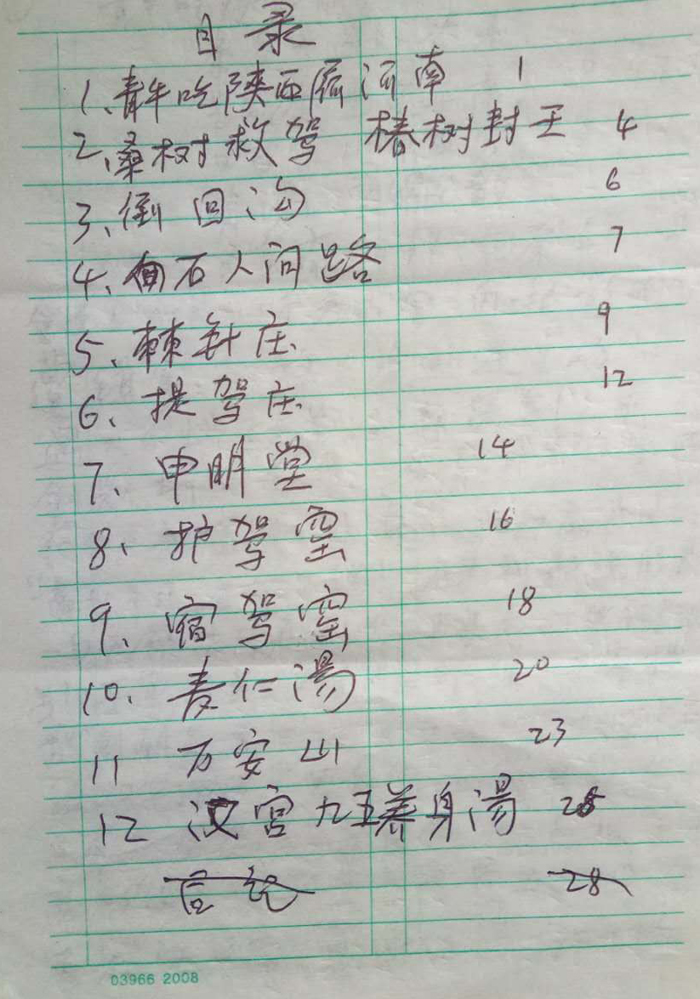 目录
1、青牛吃陕西屙河南 1
2、桑树救驾 椿树封王 4
3、倒回沟 6
4、白石人问路 7
5、棘针庄 9
6、提驾庄 12
7、申明堂 14
8、护驾窑 16
9、宿驾窑 18
10、麦仁湯 20
11 万安山 23
12 汉宫九五养身湯 25
后记 28
03966 2008